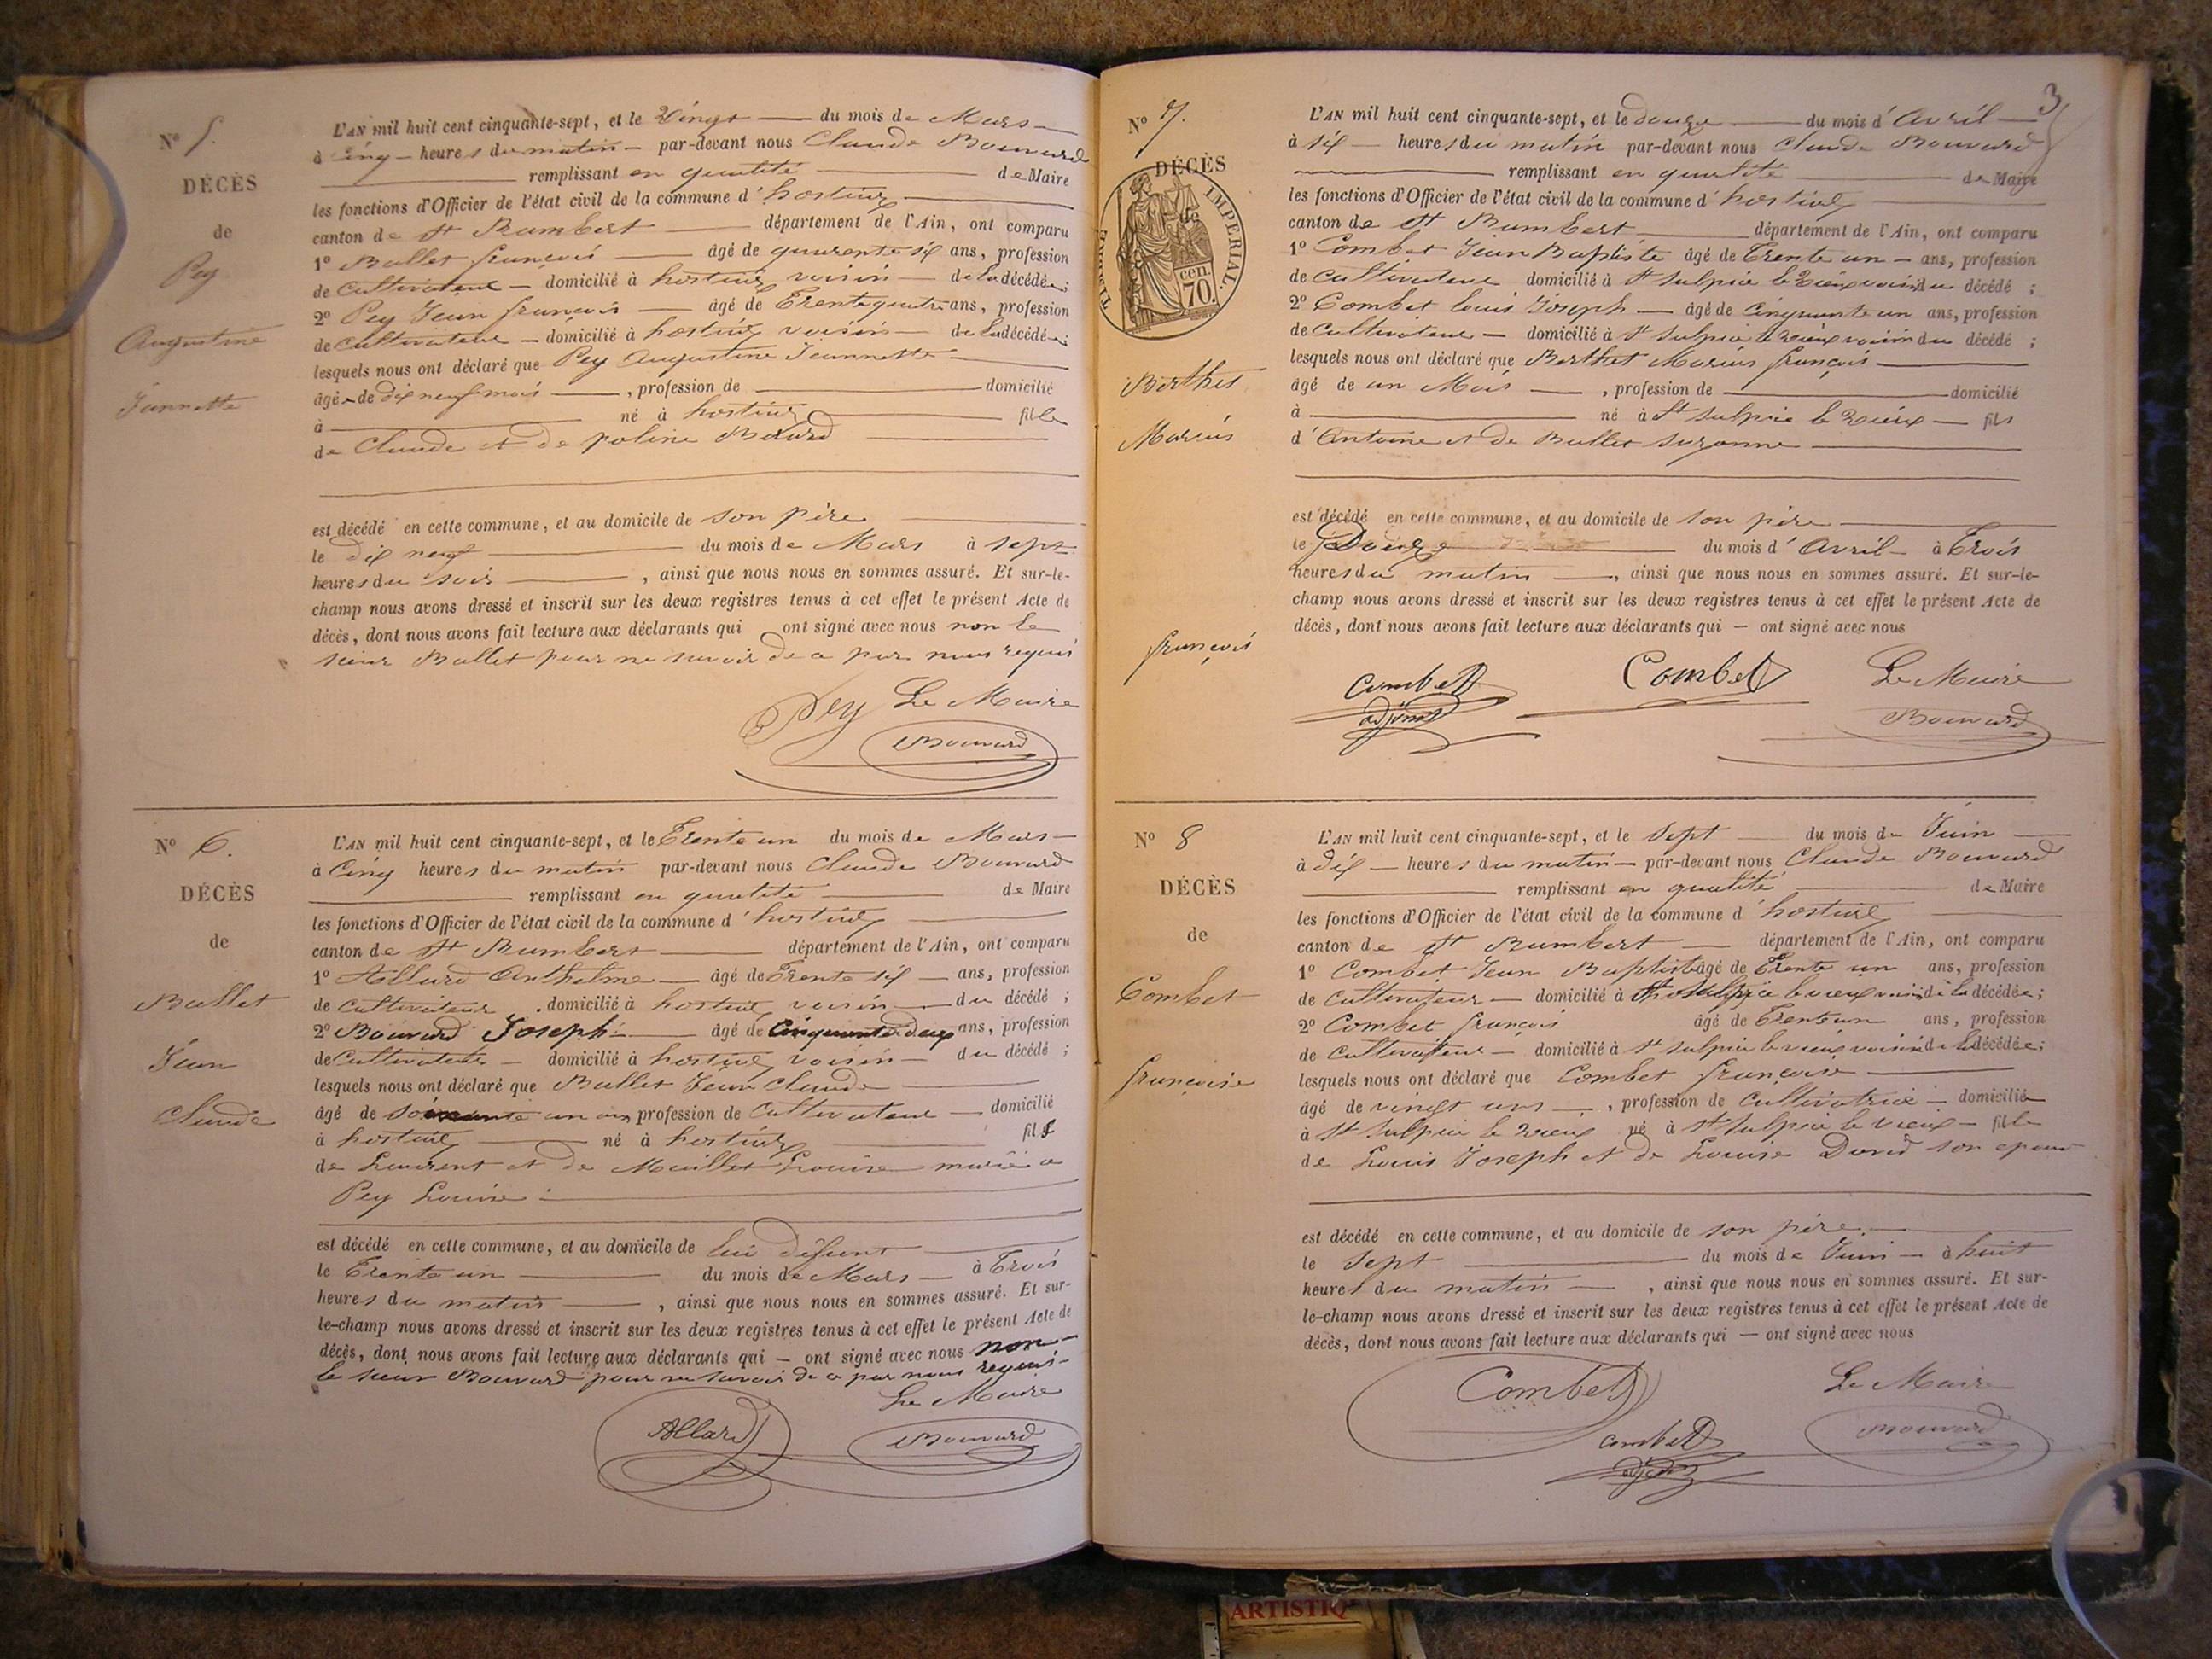 N° 5.
DÉCÈS
de
Pey
Augustine
Jannette
L'AN mil huit cent cinquante-sept, et le Vingt du mois de Mars
à cinq heures du matin par-devant nous Claude Bouvard
remplissant en qualité de Maire
les fonctions d'Officier de l'état civil de la commune d'hostiaz
canton de St Rambert département de l'Ain, ont comparu
1° Ballet françois âgé de quarente six ans, profession
de cultivateur domicilié à hostiaz voisin de la décédée;
2° Pey Jean françois âgé de Trente quatre ans, profession
de cultivateur domicilié à hostiaz voisin de la décédée;
lesquels nous ont déclaré que Pey Augustine Jeannette
âgée de dix neuf mois, profession de domicilié
à né à hostiaz fille
de Claude et de poline Bovard
est décédé en cette commune, et au domicile de son père
le dix neuf du mois de Mars à sept
heures du soir, ainsi que nous nous en sommes assuré. Et sur-le-
champ nous avons dressé et inscrit sur les deux registres tenus à cet effet le présent Acte de
décès, dont nous avons fait lecture aux déclarants qui ont signé avec nous non le
sieur Ballet pour ne savoir de ce par nous requis
Pey Le Maire
Bouvard
N° 6.
DÉCÈS
de
Ballet
Jean
Claude
L'AN mil huit cent cinquante-sept, et le Trente un du mois de Mars
à Cinq heures du matin par-devant nous Claude Bouvard
remplissant en qualité de Maire
les fonctions d'Officier de l'état civil de la commune d'hostiaz
canton de St Rambert département de l'Ain, ont comparu
1° Allard Anthelme âgé de Trente six ans, profession
de cultivateur domicilié à hostiaz voisin du décédé;
2° Bouvard Joseph âgé de Cinquante deux ans, profession
de Cultivateur domicilié à hostiaz voisin du décédé;
lesquels nous ont déclaré que Ballet Jean Claude
âgé de soixante un ans, profession de Cultivateur domicilié
à hostiaz né à hostiaz fils
de Laurent et de Maillet Louise marié a
Pey Louise
est décédé en cette commune, et au domicile de lui défunt
le Trente un du mois de Mars à Trois
heures du matin, ainsi que nous nous en sommes assuré. Et sur-
le-champ nous avons dressé et inscrit sur les deux registres tenus à cet effet le présent Acte de
décès, dont nous avons fait lecture aux déclarants qui — ont signé avec nous non
le sieur Bouvard pour ne savoir de ce par nous requis
Le Maire
Allard Bouvard
3
N° 7.
DÉCÈS
de
TIMBRE IMPERIAL
70 cen.
Berthet
Marius
françois
L'AN mil huit cent cinquante-sept, et le douze du mois d'Avril
à six heures du matin par-devant nous Claude Bouvard
remplissant en qualité de Maire
les fonctions d'Officier de l'état civil de la commune d'hostiaz
canton de St Rambert département de l'Ain, ont comparu
1° Combet Jean Baptiste âgé de Trente un ans, profession
de cultivateur domicilié à St Sulpice le Vieux voisin du décédé;
2° Combet Louis Joseph âgé de Cinquante un ans, profession
de Cultivateur domicilié à St Sulpice le Vieux voisin du décédé;
lesquels nous ont déclaré que Berthet Marius françois
âgé de un Mois, profession de domicilié
à né à St Sulpice le Vieux fils
d'Antoine et de Ballet Suzanne
est décédé en cette commune, et au domicile de son père
le Douze du mois d'Avril à Trois
heures du matin, ainsi que nous nous en sommes assuré. Et sur-le-
champ nous avons dressé et inscrit sur les deux registres tenus à cet effet le présent Acte de
décès, dont nous avons fait lecture aux déclarants qui — ont signé avec nous
Combet Combet Le Maire
adjoint Bouvard
N° 8
DÉCÈS
de
Combet
françoise
L'AN mil huit cent cinquante-sept, et le Sept du mois de Juin
à dix heures du matin par-devant nous Claude Bouvard
remplissant en qualité de Maire
les fonctions d'Officier de l'état civil de la commune d'hostiaz
canton de St Rambert département de l'Ain, ont comparu
1° Combet Jean Baptiste âgé de Trente un ans, profession
de Cultivateur domicilié à St Sulpice le vieux voisin de la décédée;
2° Combet françois âgé de Trente un ans, profession
de Cultivateur domicilié à St Sulpice le vieux voisin de la décédée;
lesquels nous ont déclaré que Combet françoise
âgé de vingt ans, profession de Cultivatrice domiciliée
à St Sulpice le vieux né à St Sulpice le vieux fille
de Louis Joseph et de Louise David son epouse
est décédé en cette commune, et au domicile de son père
le Sept du mois de Juin à huit
heures du matin, ainsi que nous nous en sommes assuré. Et sur-
le-champ nous avons dressé et inscrit sur les deux registres tenus à cet effet le présent Acte de
décès, dont nous avons fait lecture aux déclarants qui — ont signé avec nous
Combet Le Maire
Combet Bouvard
adjoint
ARTISTIQ